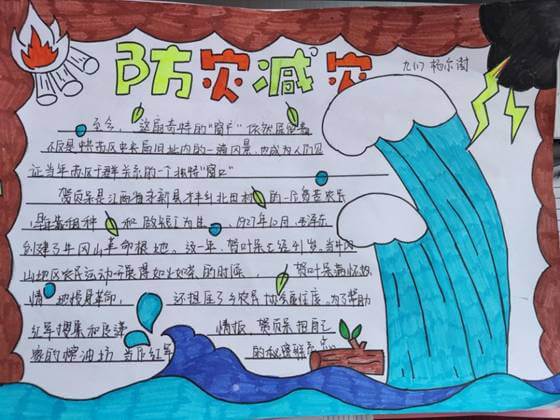 防灾减灾
至今，这扇奇特的"窗户"依然屹立着
不仅是中共西区中央局旧址内的一道风景，也成为人们见
证当年苏区干群关系的一个独特"窗口"
贺页呆是江西省永新县才丰乡北田村的一位贫苦农民
靠租种和做短工为生。1927年10月，毛泽东
创建了井冈山革命根地。这一年，贺叶呆已经引发。当井冈
山地区农民运动开展得如火如荼的时候，贺叶呆满怀热
情地投身革命，还担任了乡农民协会主任。为了帮助
红军搜集和传递情报，贺页呆把自己
家的榨油坊当作红军的秘密联